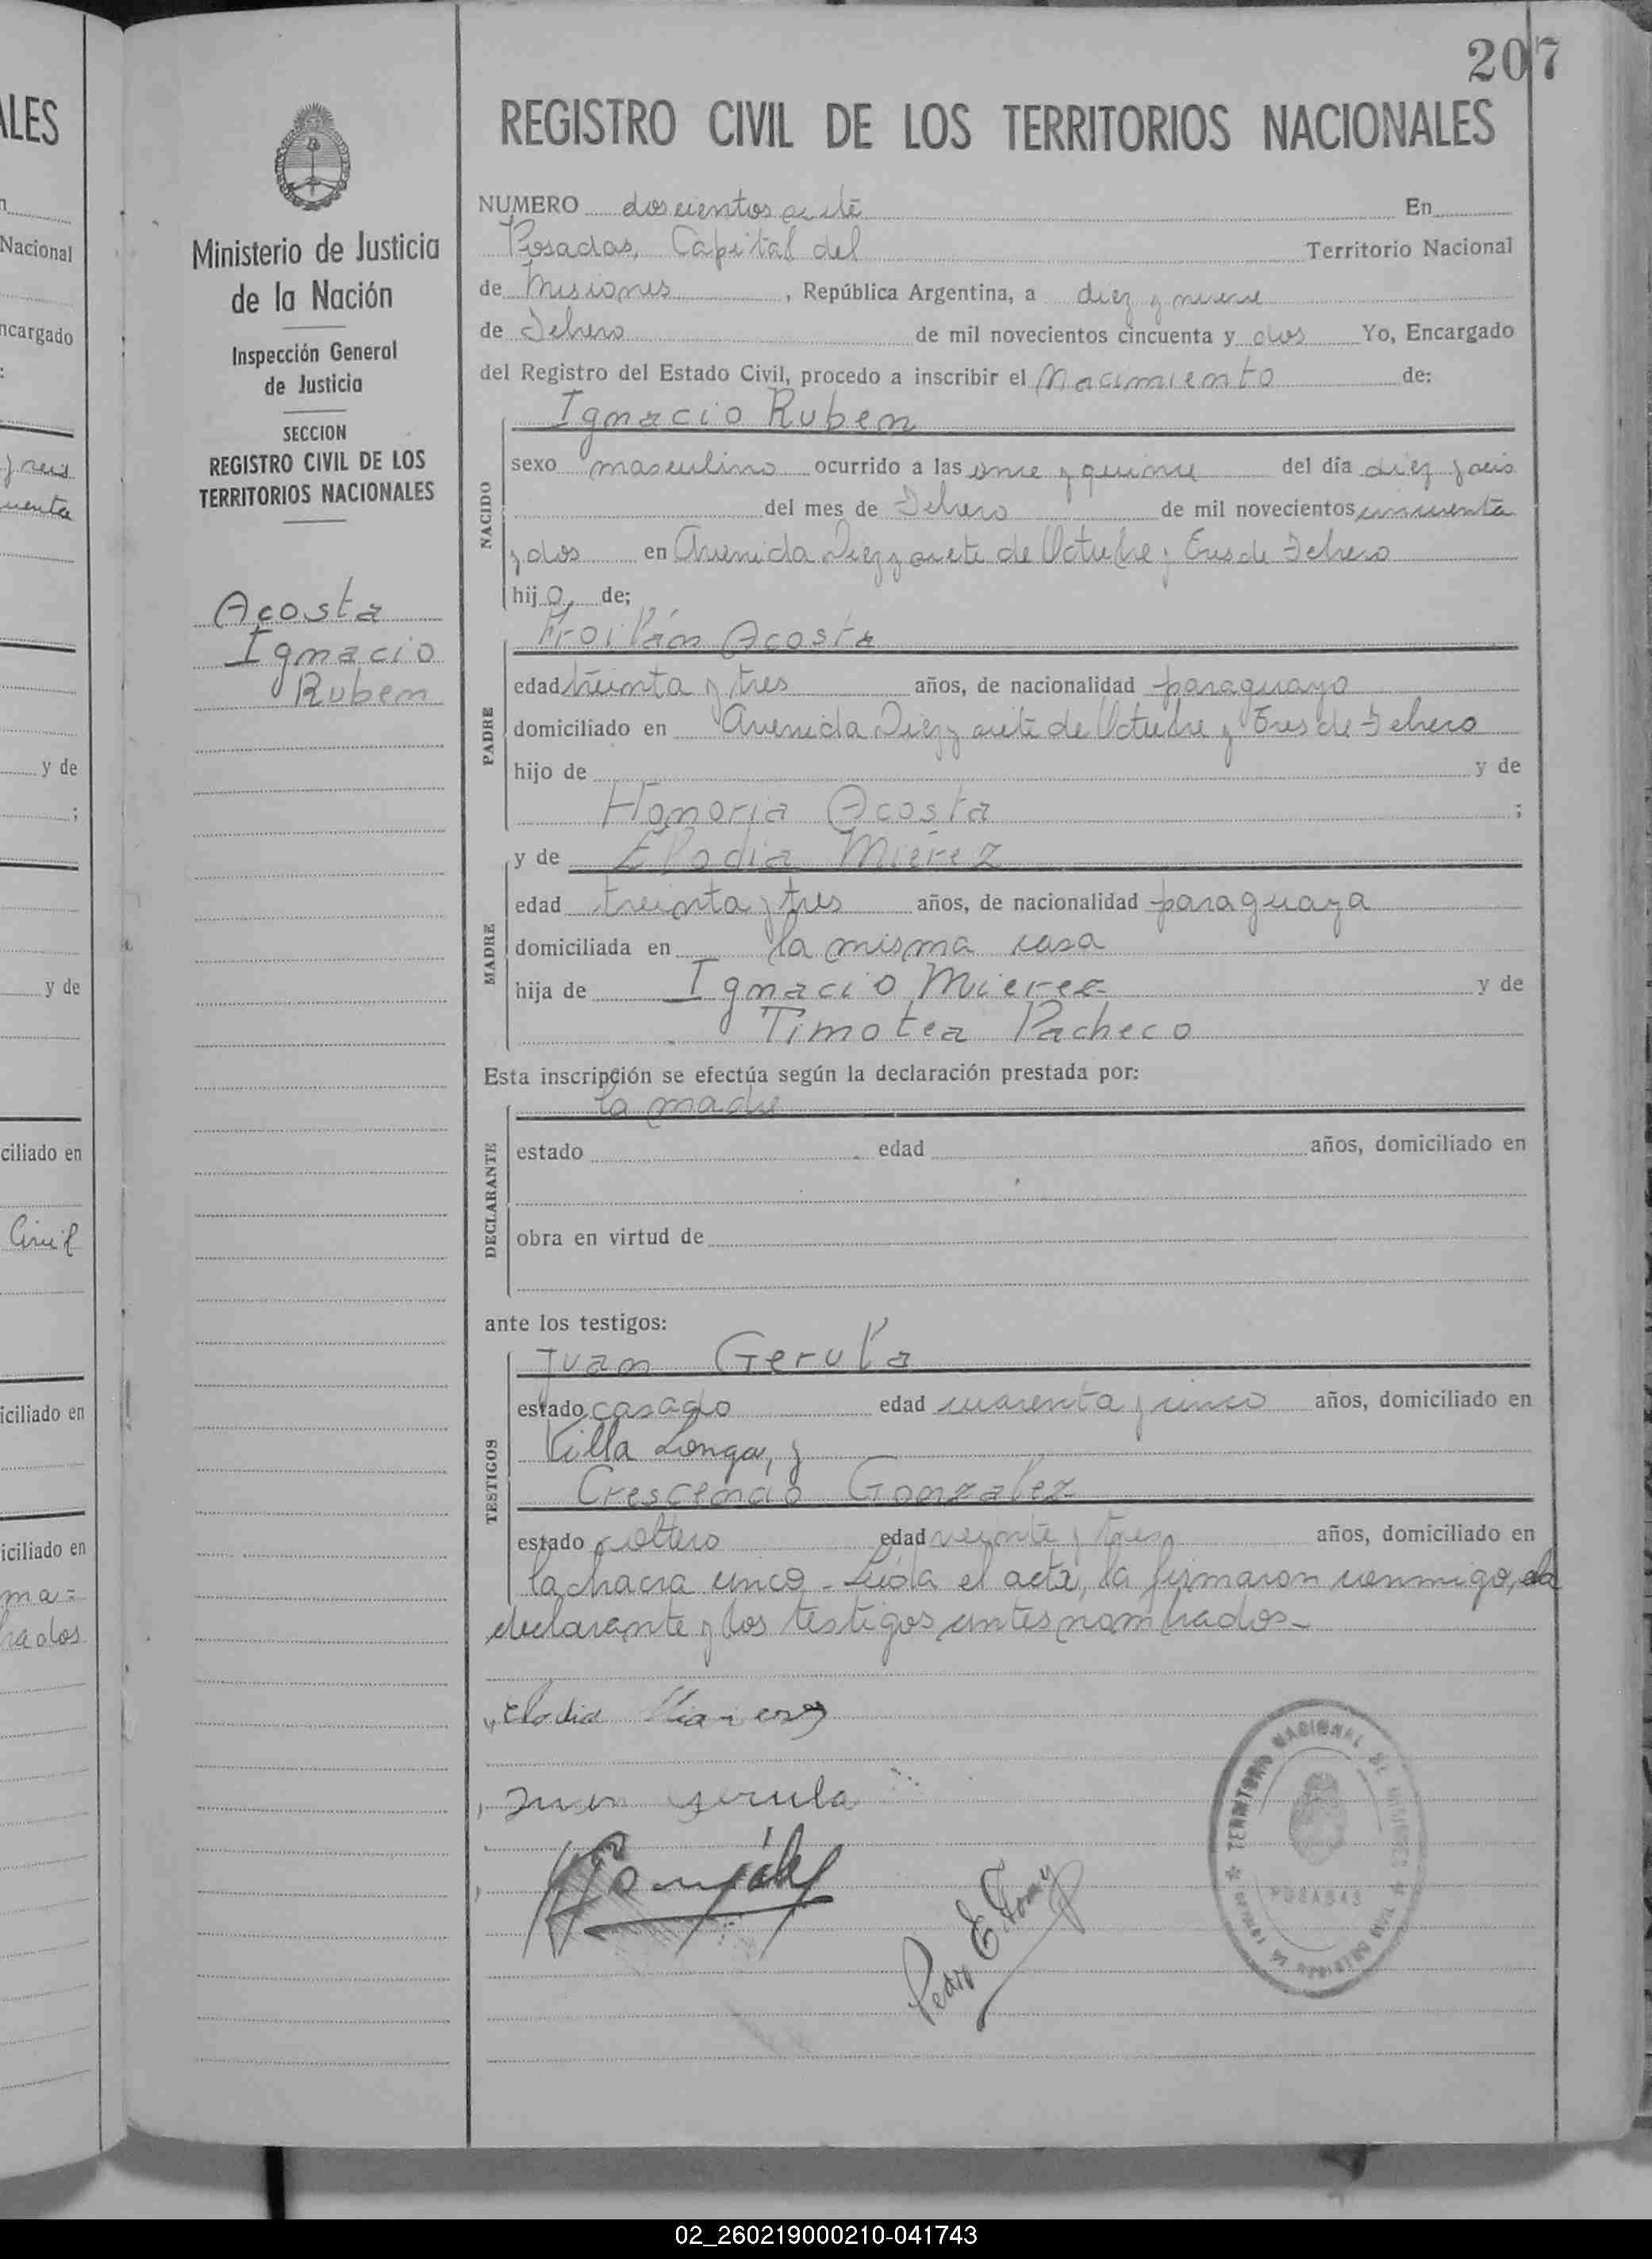 207
REGISTRO CIVIL DE LOS TERRITORIOS NACIONALES
Ministerio de Justicia
de la Nación
Inspección General
de Justicia
SECCION
REGISTRO CIVIL DE LOS
TERRITORIOS NACIONALES
Acosta
Ignacio
Ruben
NUMERO doscientos siete En
Posadas, Capital del Territorio Nacional
de Misiones, República Argentina, a diez y nueve
de Febrero de mil novecientos cincuenta y dos Yo, Encargado
del Registro del Estado Civil, procedo a inscribir el Nacimiento de:
Ignacio Ruben
NACIDO
sexo masculino ocurrido a las once y quince del día diez y seis
del mes de Febrero de mil novecientos cincuenta
y dos en Avenida Diez y siete de Octubre y Tres de Febrero
hijo de;
Froilán Acosta
PADRE
edad treinta y tres años, de nacionalidad paraguayo
domiciliado en Avenida Diez y siete de Octubre y Tres de Febrero
hijo de y de
Honoria Acosta ;
y de Elodia Mierez
MADRE
edad treinta y tres años, de nacionalidad paraguaya
domiciliada en la misma casa
hija de Ignacio Mierez y de
Timotea Pacheco
Esta inscripción se efectúa según la declaración prestada por:
la madre
DECLARANTE
estado edad años, domiciliado en
obra en virtud de
ante los testigos:
Juan Gerula
TESTIGOS
estado casado edad cuarenta y cinco años, domiciliado en
Villa Longa, y
Crescencio Gonzalez
estado soltero edad veinte y tres años, domiciliado en
la chacra cinco - Leída el acta, la firmaron conmigo, la
declarante y los testigos antes nombrados -
Elodia
Juan Gerula
González
Pedro E.
TERRITORIO NACIONAL DE MISIONES
POSADAS
LES
n
Nacional
ncargado
:
y seis
cuenta
y de
;
y de
ciliado en
Civil
iciliado en
iciliado en
ma=
rados
02_260219000210-041743